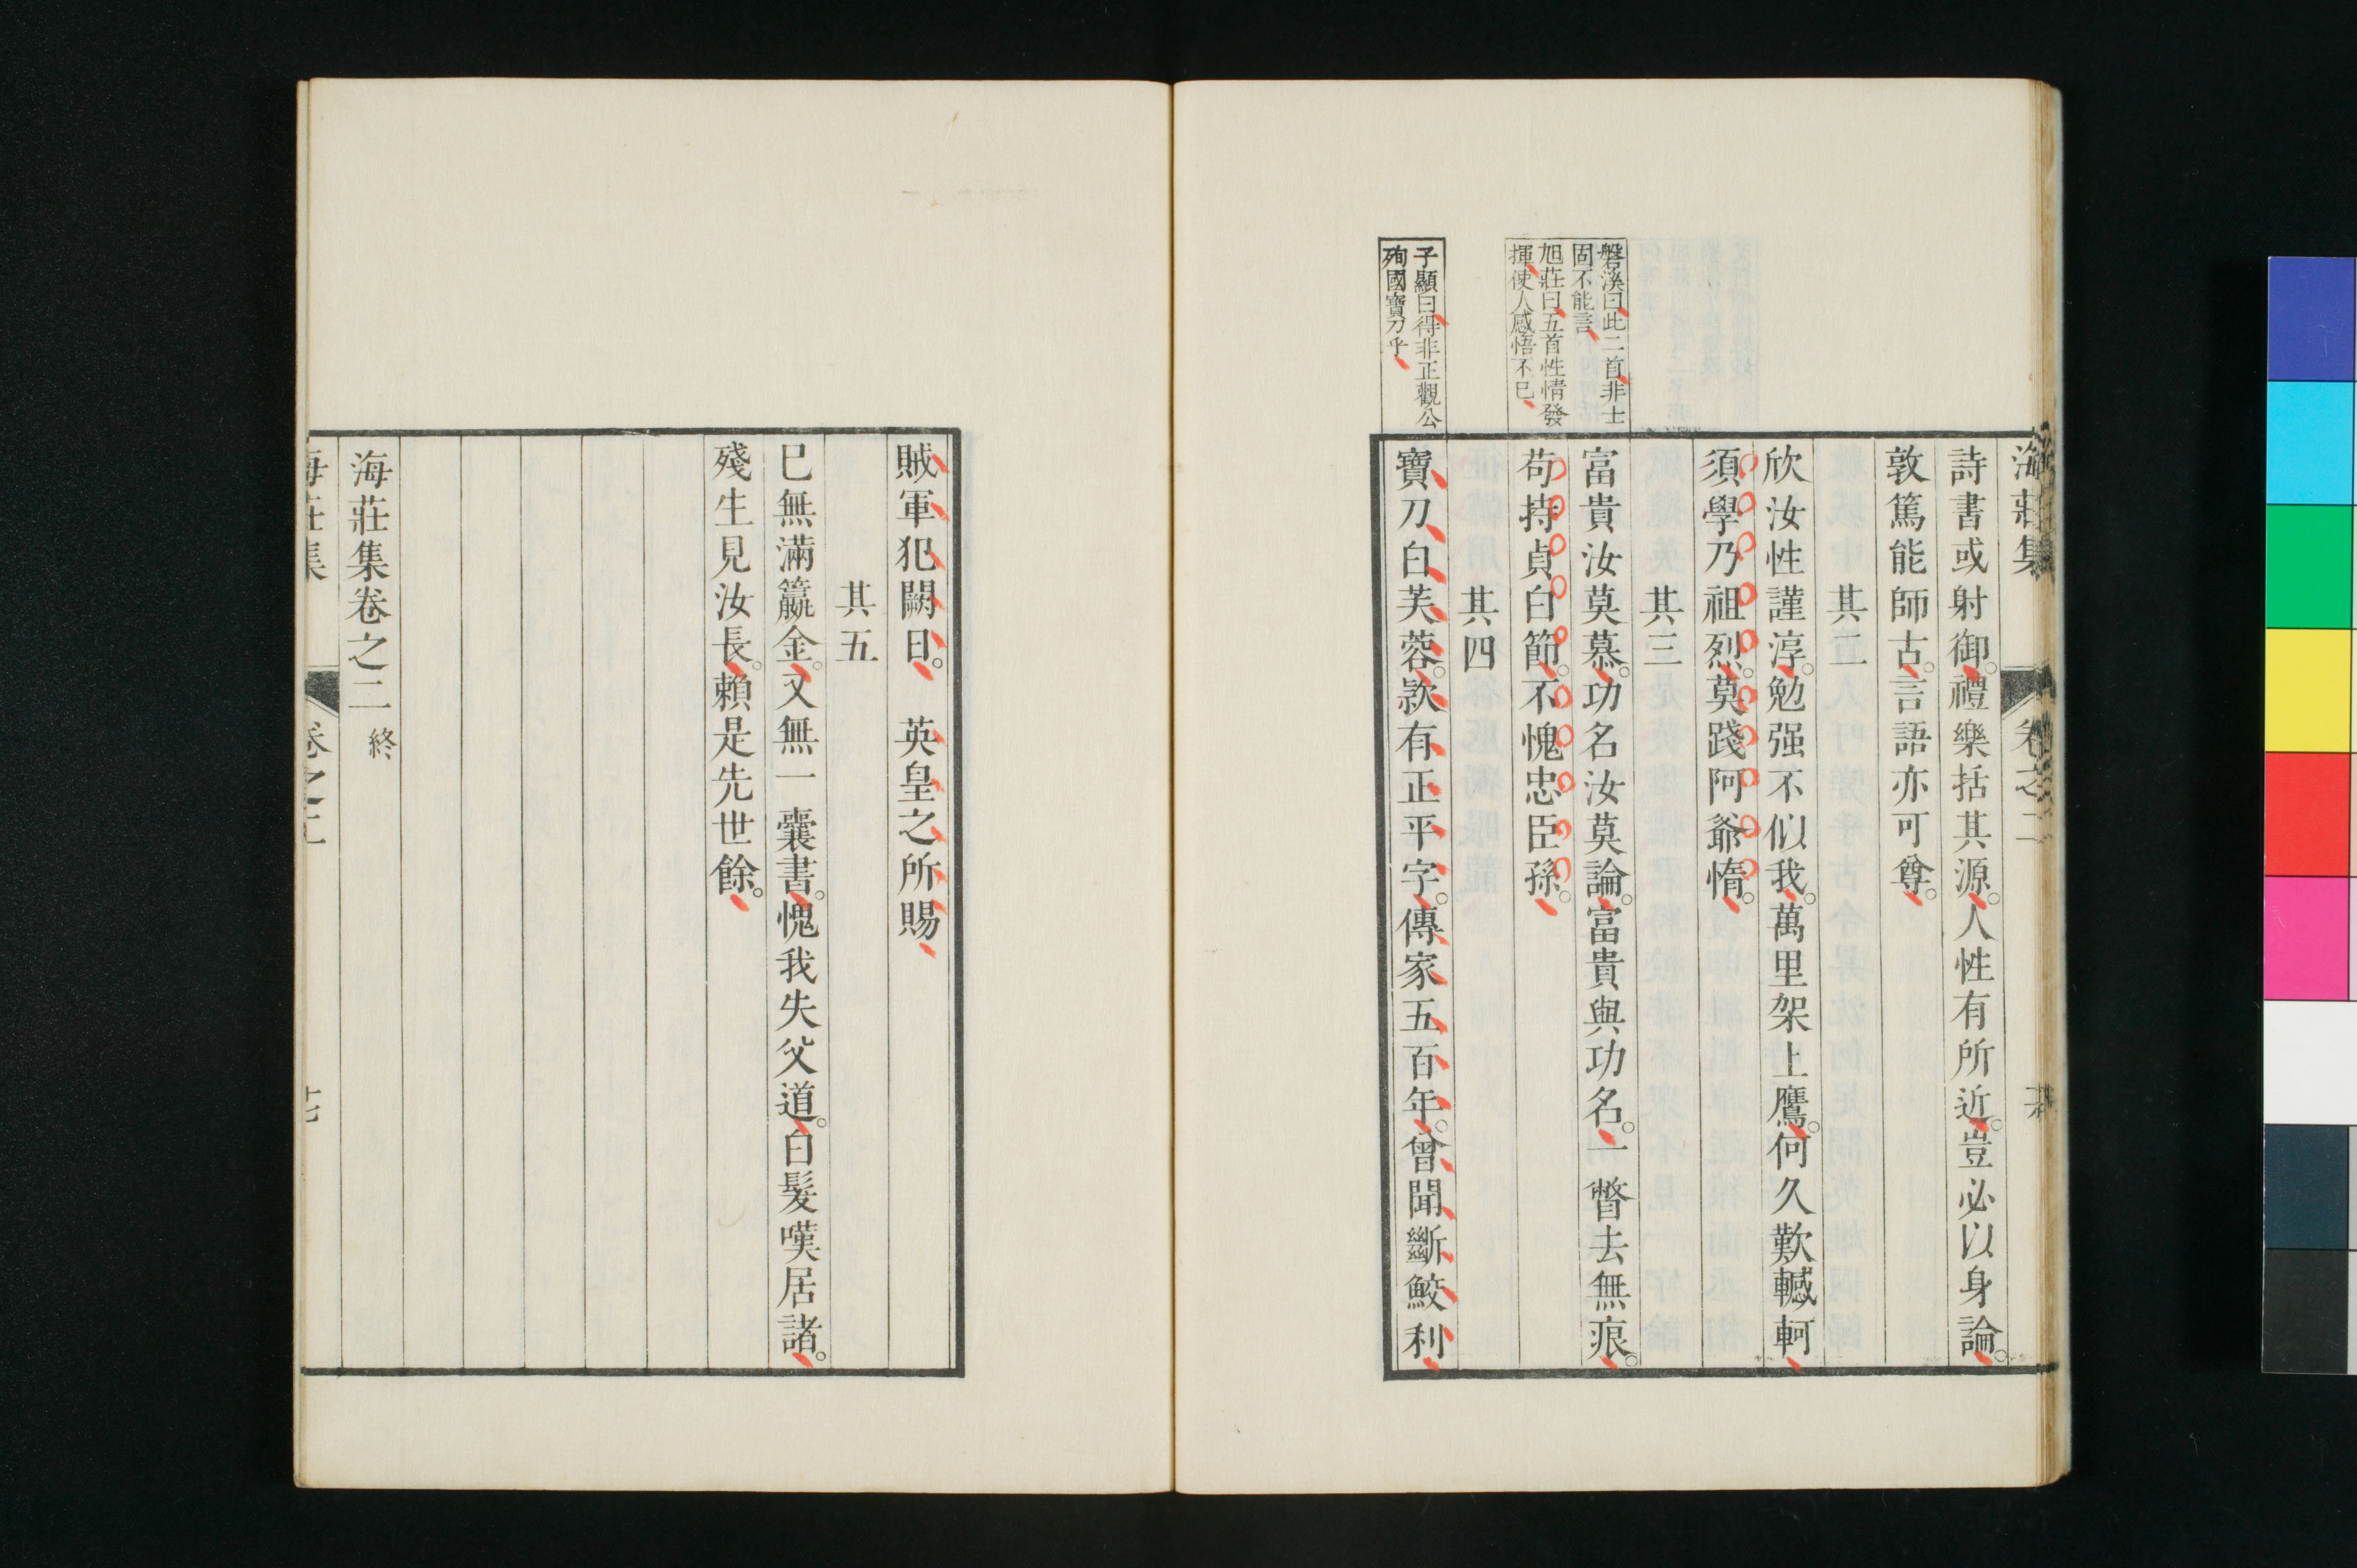 海莊集 卷之二
詩書或射御。禮樂括其源。人性有所近。豈必以身論。
敦篤能師古。言語亦可尊。
其二
欣汝性謹淳。勉强不似我。萬里架上鷹。何久歎轗軻
須學乃祖烈。莫踐阿爺惰。
其三
富貴汝莫慕。功名汝莫論。富貴與功名。一瞥去無痕。
苟持貞白節。不愧忠臣孫。
其四
寶刀白芙蓉。欵有正平字。傳家五百年。曾聞斷鮫利
磐溪曰此二首非士
固不能言
旭莊曰五首性情發
揮使人感悟不已
子顯曰得非正觀公
殉國寶刀乎
賊軍犯闕日。 英皇之所賜
其五
已無滿籯金。又無一囊書。愧我失父道。白髮嘆居諸。
殘生見汝長。賴是先世餘。
海莊集卷之二 終
海莊集 卷之二 十七